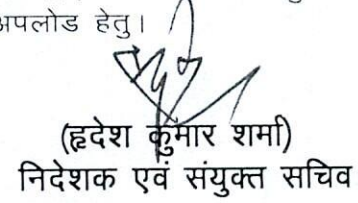 अपलोड हेतु।
(हृदेश कुमार शर्मा)
निदेशक एवं संयुक्त सचिव